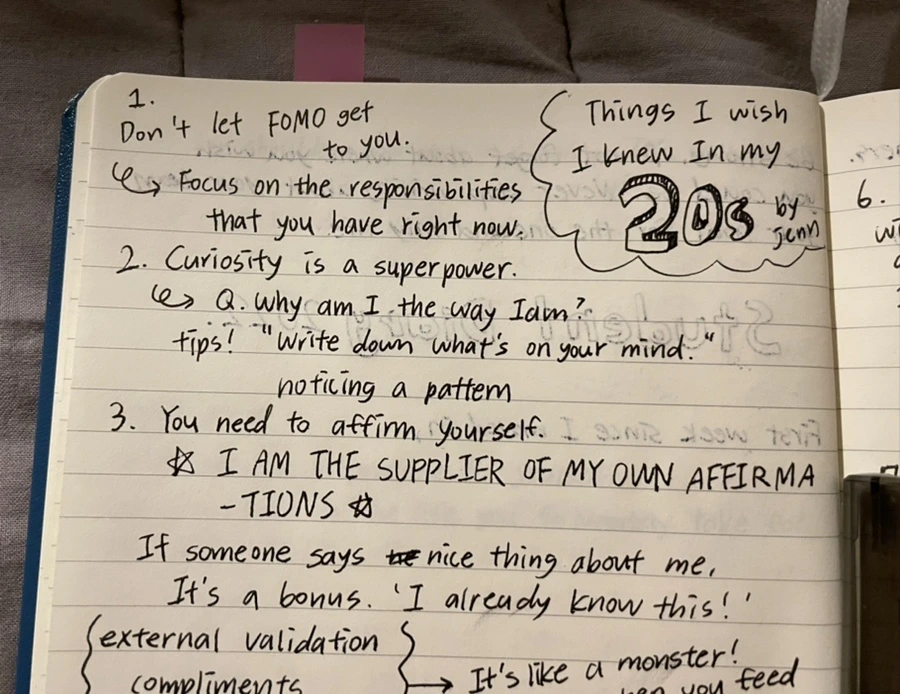 Things I wish
I knew In my
20s by
jenn
1.
Don't let FOMO get
to you.
Focus on the responsibilities
that you have right now.
2. Curiosity is a superpower.
Q. Why am I the way I am?
tips! "Write down what's on your mind."
noticing a pattern
3. You need to affirm yourself.
☆ I AM THE SUPPLIER OF MY OWN AFFIRMA
-TIONS ☆
If someone says nice thing about me,
It's a bonus. 'I already know this!'
external validation
compliments
It's like a monster!
you feed
6.